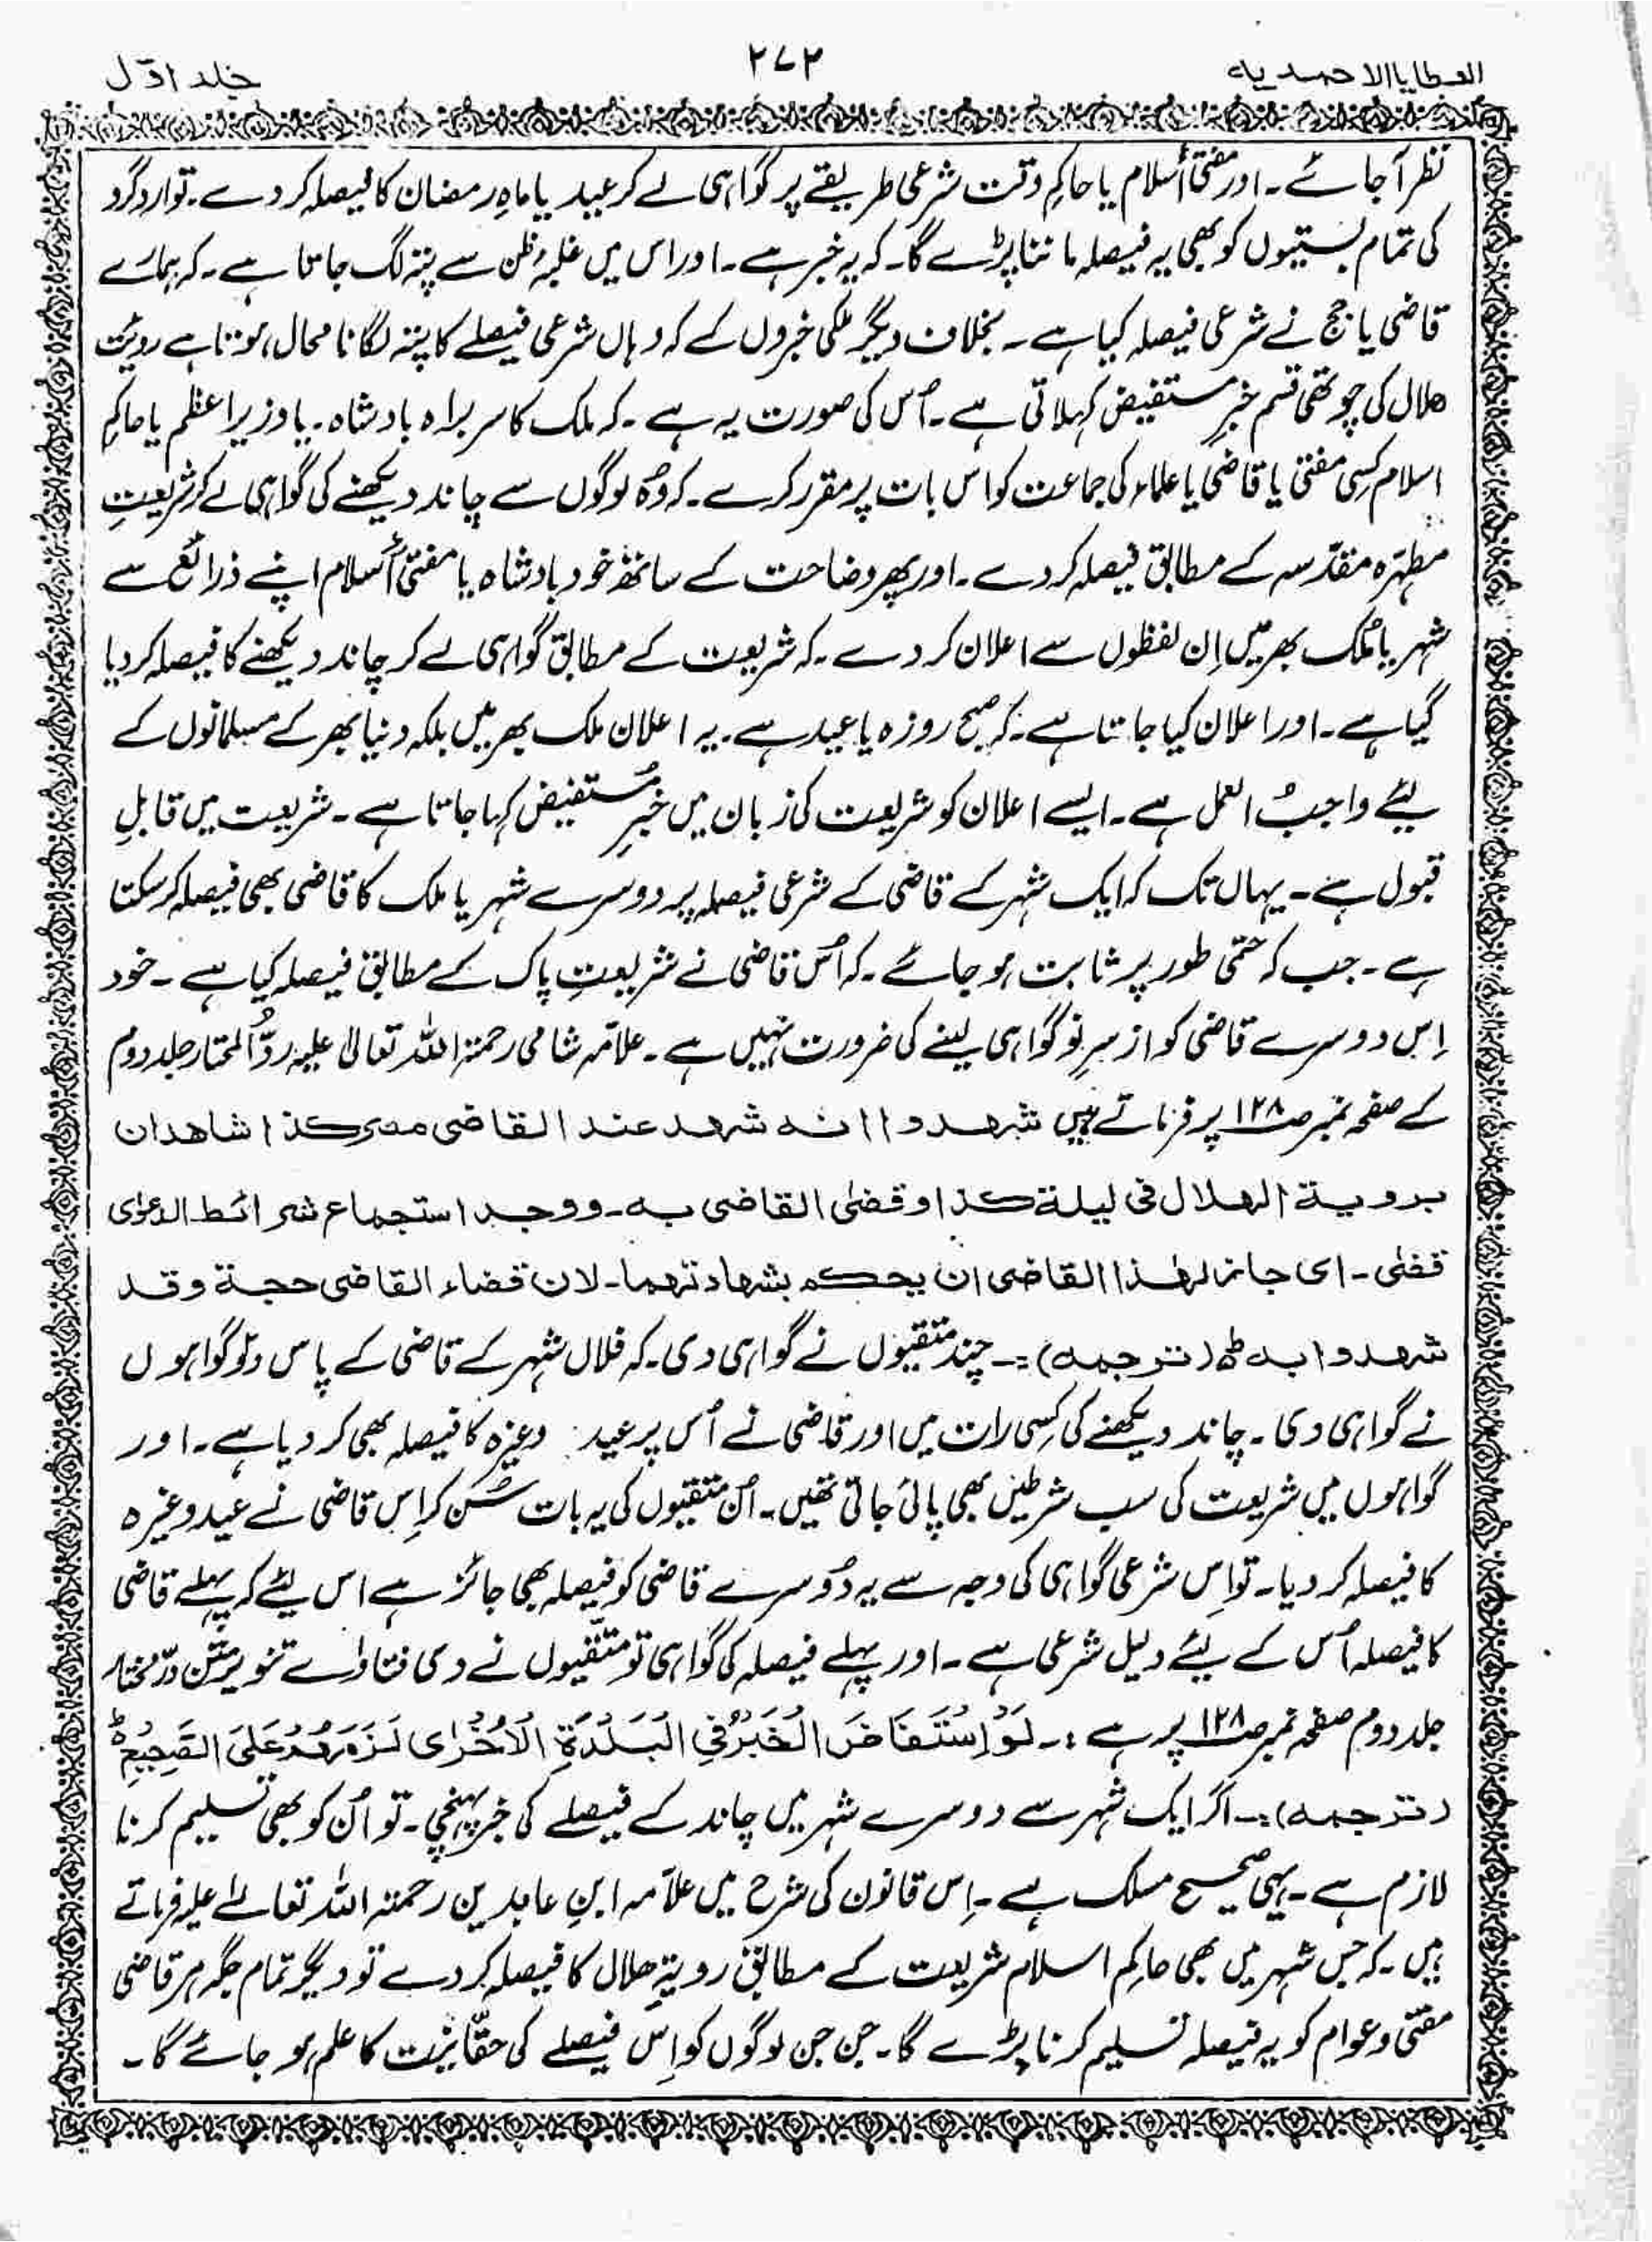 العطایا الاحمدیہ
۲۷۲
جلد اوّل
نظر آ جائے۔ اور مفتیٔ اسلام یا حاکمِ وقت شرعی طریقے پر گواہی لے کر عید یا ماہِ رمضان کا فیصلہ کر دے۔ تو ارد گرد
کی تمام بستیوں کو بھی یہ فیصلہ ماننا پڑے گا۔ کہ یہ خبر ہے۔ اور اس میں غلبۂ ظن سے پتہ لگ جاتا ہے۔ کہ ہمارے
قاضی یا جج نے شرعی فیصلہ کیا ہے۔ بخلاف دیگر ملکی خبروں کے کہ وہاں شرعی فیصلے کا پتہ لگانا محال ہوتا ہے رویئت
ھلال کی چوتھی قسم خبرِ مستفیض کہلاتی ہے۔ اُس کی صورت یہ ہے۔ کہ ملک کا سربراہ بادشاہ۔ یا وزیراعظم یا حاکمِ
اسلام کسی مفتی یا قاضی یا علماء کی جماعت کو اس بات پر مقرر کرے۔ کہ وُہ لوگوں سے چاند دیکھنے کی گواہی لے کر شریعتِ
مطہّرہ مقدّسہ کے مطابق فیصلہ کر دے۔ اور پھر وضاحت کے ساتھ خود بادشاہ یا مفتیٔ اسلام اپنے ذرائع سے
شہر یا مُلک بھر میں اِن لفظوں سے اعلان کر دے۔ کہ شریعت کے مطابق گواہی لے کر چاند دیکھنے کا فیصلہ کر دیا
گیا ہے۔ اور اعلان کیا جاتا ہے۔ کہ صبح روزہ یا عید ہے۔ یہ اعلان ملک بھر میں بلکہ دنیا بھر کے مسلمانوں کے
لیئے واجبُ العمل ہے۔ ایسے اعلان کو شریعت کی زبان میں خبرِ مُستفیض کہا جاتا ہے۔ شریعت میں قابلِ
قبول ہے۔ یہاں تک کہ ایک شہر کے قاضی کے شرعی فیصلہ پر دوسرے شہر یا ملک کا قاضی بھی فیصلہ کر سکتا
ہے۔ جب کہ حتمی طور پر ثابت ہو جائے۔ کہ اُس قاضی نے شریعتِ پاک کے مطابق فیصلہ کیا ہے۔ خود
اِس دوسرے قاضی کو از سرِ نو گواہی لینے کی ضرورت نہیں ہے۔ علاّمہ شامی رحمتہ اللہ تعالیٰ علیہ ردُّالمحتار جلد دوم
کے صفحہ نمبر صـ۱۲۸ پر فرماتے ہیں شہدوا انہ شہد عند القاضی مصر کذا شاھدان
برویة الھلال فی لیلة کذا وقضی القاضی بہ۔ ووجد استجماع شرائط الدعوٰی
قضٰی۔ ای جاز لھٰذا القاضی ان یحکم بشھادتھما۔ لان قضاء القاضی حجة وقد
شھدوا بہ ط (ترجمہ):۔ چند متقیوں نے گواہی دی۔ کہ فلاں شہر کے قاضی کے پاس دو گواہوں
نے گواہی دی۔ چاند دیکھنے کی کِسی رات میں اور قاضی نے اُس پر عید وغیرہ کا فیصلہ بھی کر دیا ہے۔ اور
گواہوں میں شریعت کی سب شرطیں بھی پائی جاتی تھیں۔ اُن متقیوں کی یہ بات سُن کر اِس قاضی نے عید وغیرہ
کا فیصلہ کر دیا۔ تو اِس شرعی گواہی کی وجہ سے یہ دُوسرے قاضی کو فیصلہ بھی جائز ہے اس لیئے کہ پہلے قاضی
کا فیصلہ اُس کے لیئے دلیل شرعی ہے۔ اور پہلے فیصلہ کی گواہی تو متّقیوں نے دی فتاوٰے تنویر متن درّ مختار
جلد دوم صفحہ نمبر صـ۱۲۸ پر ہے :۔ لَوْ اِسْتَفَاضَ الْخَبَرُ فِی الْبَلْدَةِ الْاُخْرٰی لَزِمَهُمْ عَلَی الصَّحِیْحِ ط
(ترجمہ):۔ اگر ایک شہر سے دوسرے شہر میں چاند کے فیصلے کی خبر پہنچی۔ تو اُن کو بھی تسلیم کرنا
لازم ہے۔ یہی صحیح مسلک ہے۔ اِس قانون کی شرح میں علاّمہ ابنِ عابدین رحمتہ اللہ تعالےٰ علیہ فرماتے
ہیں۔ کہ جس شہر میں بھی حاکمِ اسلام شریعت کے مطابق رویۃِ ھلال کا فیصلہ کر دے تو دیگر تمام جگہ ہر قاضی
مفتی و عوام کو یہ فیصلہ تسلیم کرنا پڑے گا۔ جن جن لوگوں کو اِس فیصلے کی حقّانیّت کا علم ہو جائے گا۔